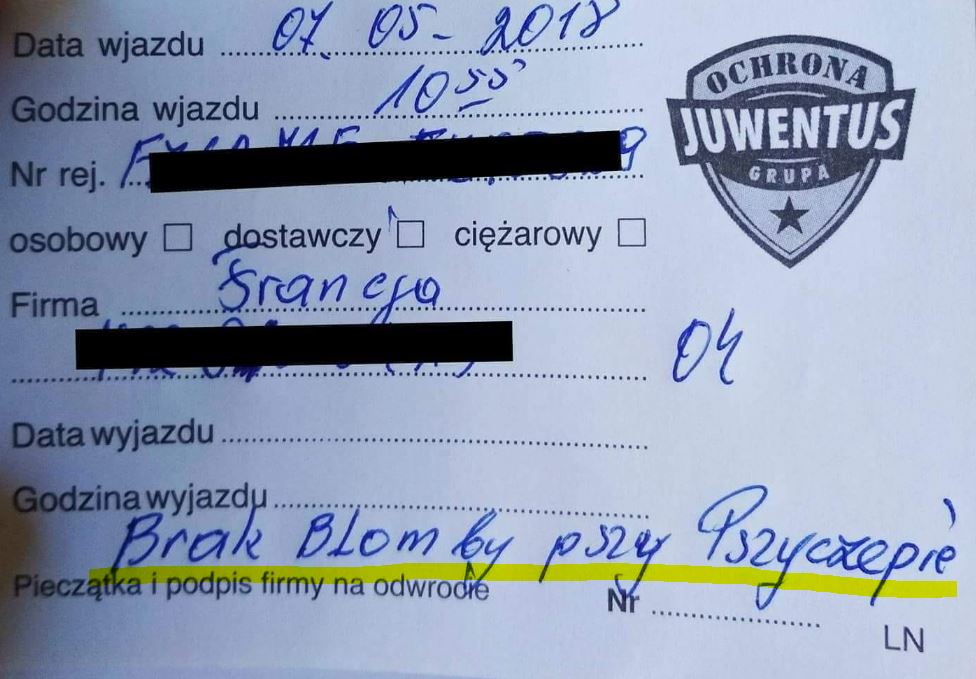 Data wjazdu 07. 05 - 2018
Godzina wjazdu 10 55
Nr rej.
osobowy dostawczy ciężarowy
Firma Francja
04
Data wyjazdu
Godzina wyjazdu
Brak Blomby pszy Pszyczepie
Pieczątka i podpis firmy na odwrocie
Nr
LN
OCHRONA
JUWENTUS
GRUPA